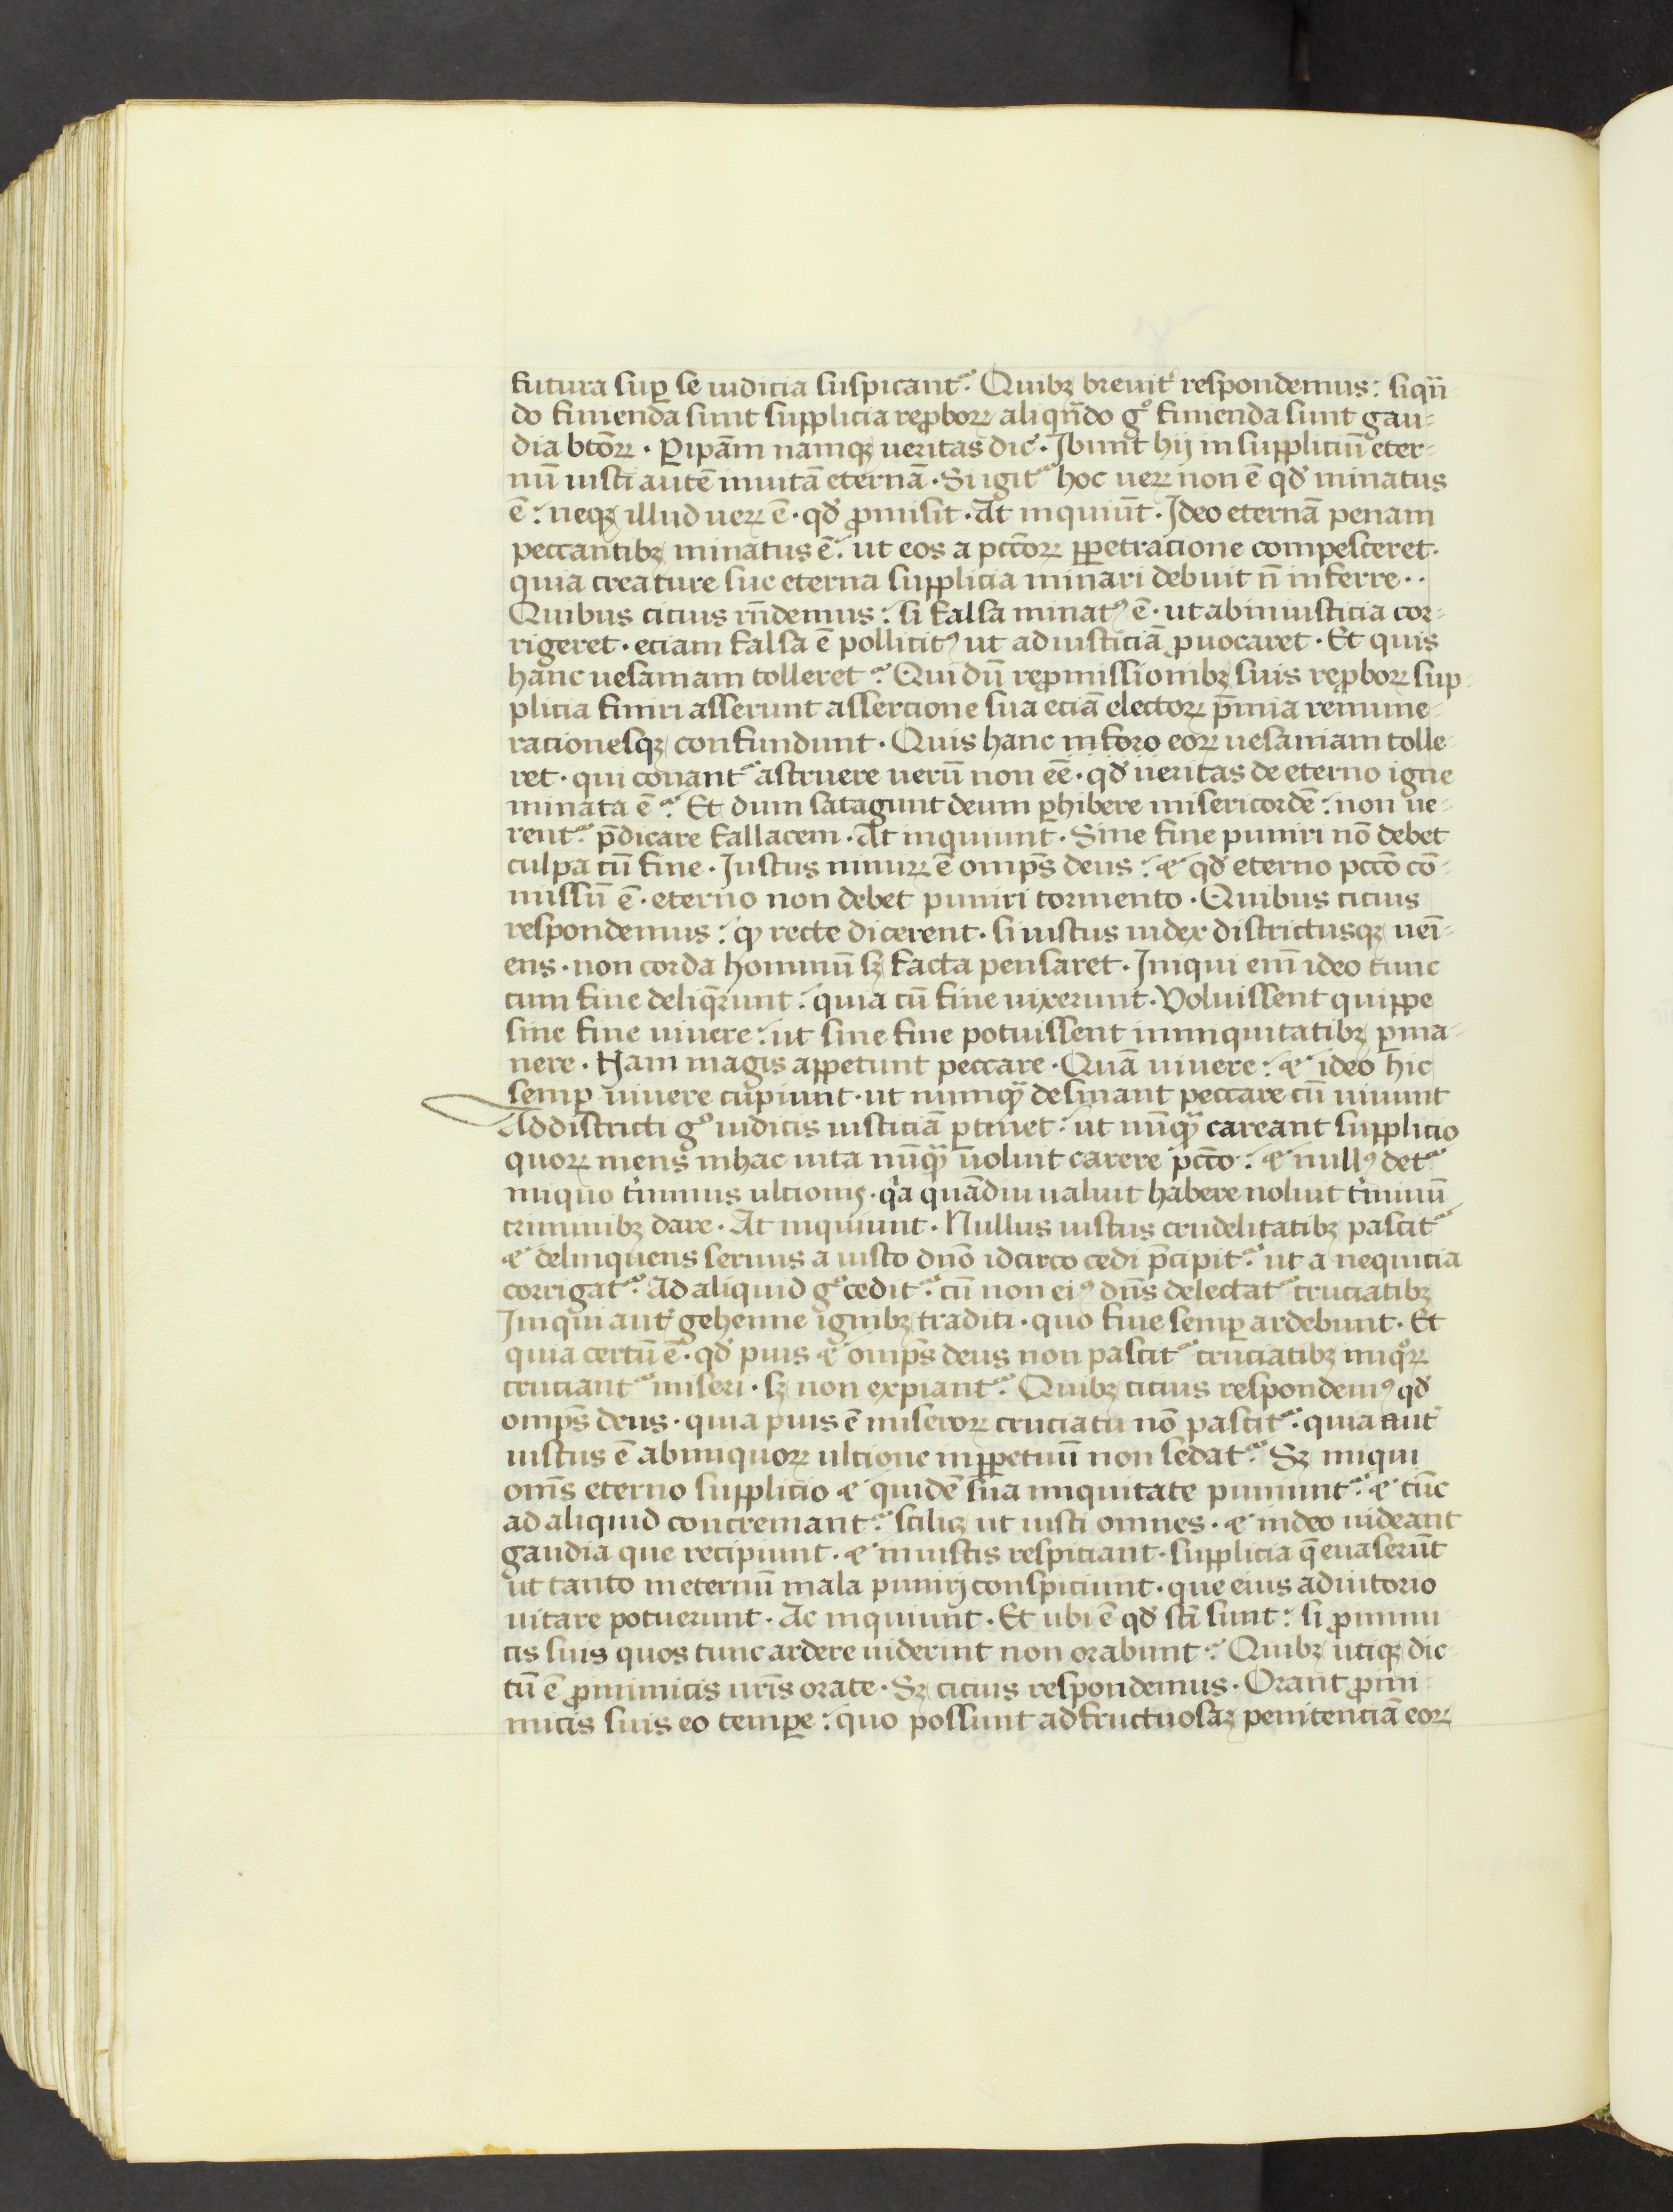 futura suꝑ se iudicia suspicantᷣ. Quibꝫ breuit̾ respondemus: siqn̄
do finienda sunt supplicia reꝓboꝝ aliqn̄do gͦ finienda sunt gau-
dia btōꝝ. P ipām namqꝫ ueritas dic̾. Jbunt hij in suppliciū eter-
nū iusti autē inuitā eternā. Si igitᷣ hoc ueꝝ non ē qđ minatus
ē: neqꝫ illud ueꝝ ē. qđ ꝓmisit. At inquiūt. Jdeo eternā penam
peccantibꝫ minatus ē. ut eos a pctōꝝ ꝑpetracione compesceret.
quia creature sue eterna supplicia minari debuit n̄ inferre..
Quibus cicius rn̄demus: si falsa minatꝰ ē. ut abiniusticia cor-
rigeret. eciam falsa ē pollicitꝰ ut adiusticiā ꝓuocaret. Et quis
hanc uesaniam tolleretᷣ. Qui dū reꝓmissionibꝫ suis reꝓboꝝ sup
plicia finiri asserunt assercione sua eciā electoꝝ p̄mia remune-
racionesqꝫ confundunt. Quis hanc in foro eoꝝ uesaniam tolle
ret. qui conantᷣ astruere uerū non eē. qđ ueritas de eterno igne
minata ē. Et dum satagunt deum ꝑhibere misericordē: non ue-
rentᷣ. p̄dicare fallacem. At inquiunt. Sine fine puniri nō debet
culpa cū fine. Justus nimiꝝ ē omp̄s deus: ⁊ qđ eterno pctō cō-
missū ē. eterno non debet puniri tormento. Quibus cicius
respondemus: ꝙ recte dicerent. si iustus iudex districtusqꝫ uei-
ens. non corda hominū sꝫ facta pensaret. Jniqui enī ideo tunc
cum fine deliqr̄unt: quia cū fine uixerunt. Voluissent quippe
sine fine uiuere: ut sine fine potuissent in iniquitatibꝫ ꝑma-
nere. Nam magis appetunt peccare. Quā uiuere: ⁊ ideo hic
semꝑ uiuere cupiunt. ut numꝙ̄ desinant peccare cū uiuunt
Addistricti gͦ iudicis iusticiā ꝑtinet: ut nūꝙ̄ careant supplicio
quoꝝ mens inhac uita nūꝙ̄ uoluit carere pctō: ⁊ nullꝰ detᷣ
iniquo t̾minus ulcionis. qa quādiu ualuit habere noluit t̾minū
criminibꝫ dare. At inquiunt. Nullus iustus crudelitatibꝫ pascitᷣ
⁊ delinquens seruus a iusto dnō idcirco cedi p̄cipitᷣ. ut a nequicia
corrigatᷣ. Ad aliquid gͦ ceditᷣ. cū non eiꝰ dn̄s delectatᷣ cruciatibꝫ
Jniqui aut̾ gehenne ignibꝫ traditi. quo fine semꝑ ardebunt. Et
quia certū ē. qđ pius ⁊ omp̄s deus non pascitᷣ cruciatibꝫ iniqͦꝝ
cruciantᷣ miseri. sꝫ non expiantᷣ. Quibꝫ cicius respondemꝰ qđ
omp̄s deus. quia pius ē miseroꝝ cruciatu nō pascitᷣ. quia aut̾
iustus ē abiniquoꝝ ulcione inꝑpetuū non sedatᷣ. Sꝫ iniqui
omīs eterno supplicio ⁊ quidē sua iniquitate puniuntᷣ. ⁊ tūc
ad aliquid concremantᷣ. scilicꝫ ut iusti omnes. ⁊ indeo uideant
gaudia que recipiunt. ⁊ in iustis respiciant. supplicia q̄ euaserūt
ut tanto in eternū mala puniri conspiciunt. que eius adiutorio
uitare potuerunt. Ac inquiunt. Et ubi ē qđ sc̄i sunt: si ꝓ inimi
cis suis quos tunc ardere uiderint non orabunt. Quibꝫ utiqꝫ dic-
tū ē ꝓ inimicis ur̄is orate. Sꝫ cicius respondemus. Orant ꝓ ini
micis suis eo tempe: quo possunt adfructuosāꝫ penitenciā eoꝝ